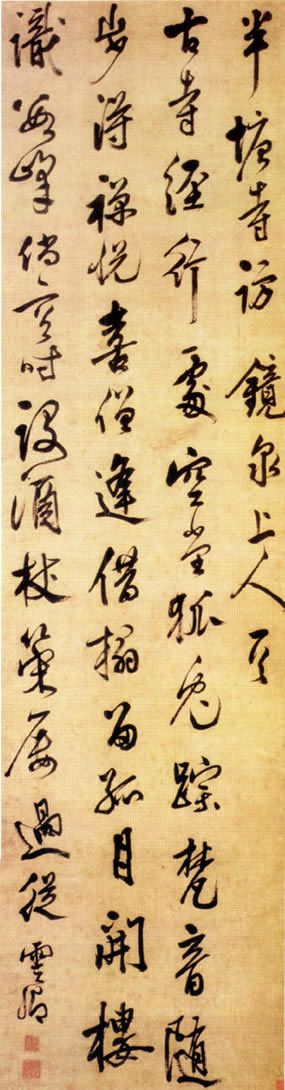 半塘寺訪 鏡泉上人
古寺經行處空堂狐兔蹤梵音隨
步得禪悅喜僧逢借榻留孤月開樓
識峰倘容時設酒杖策屢過從 雲卿